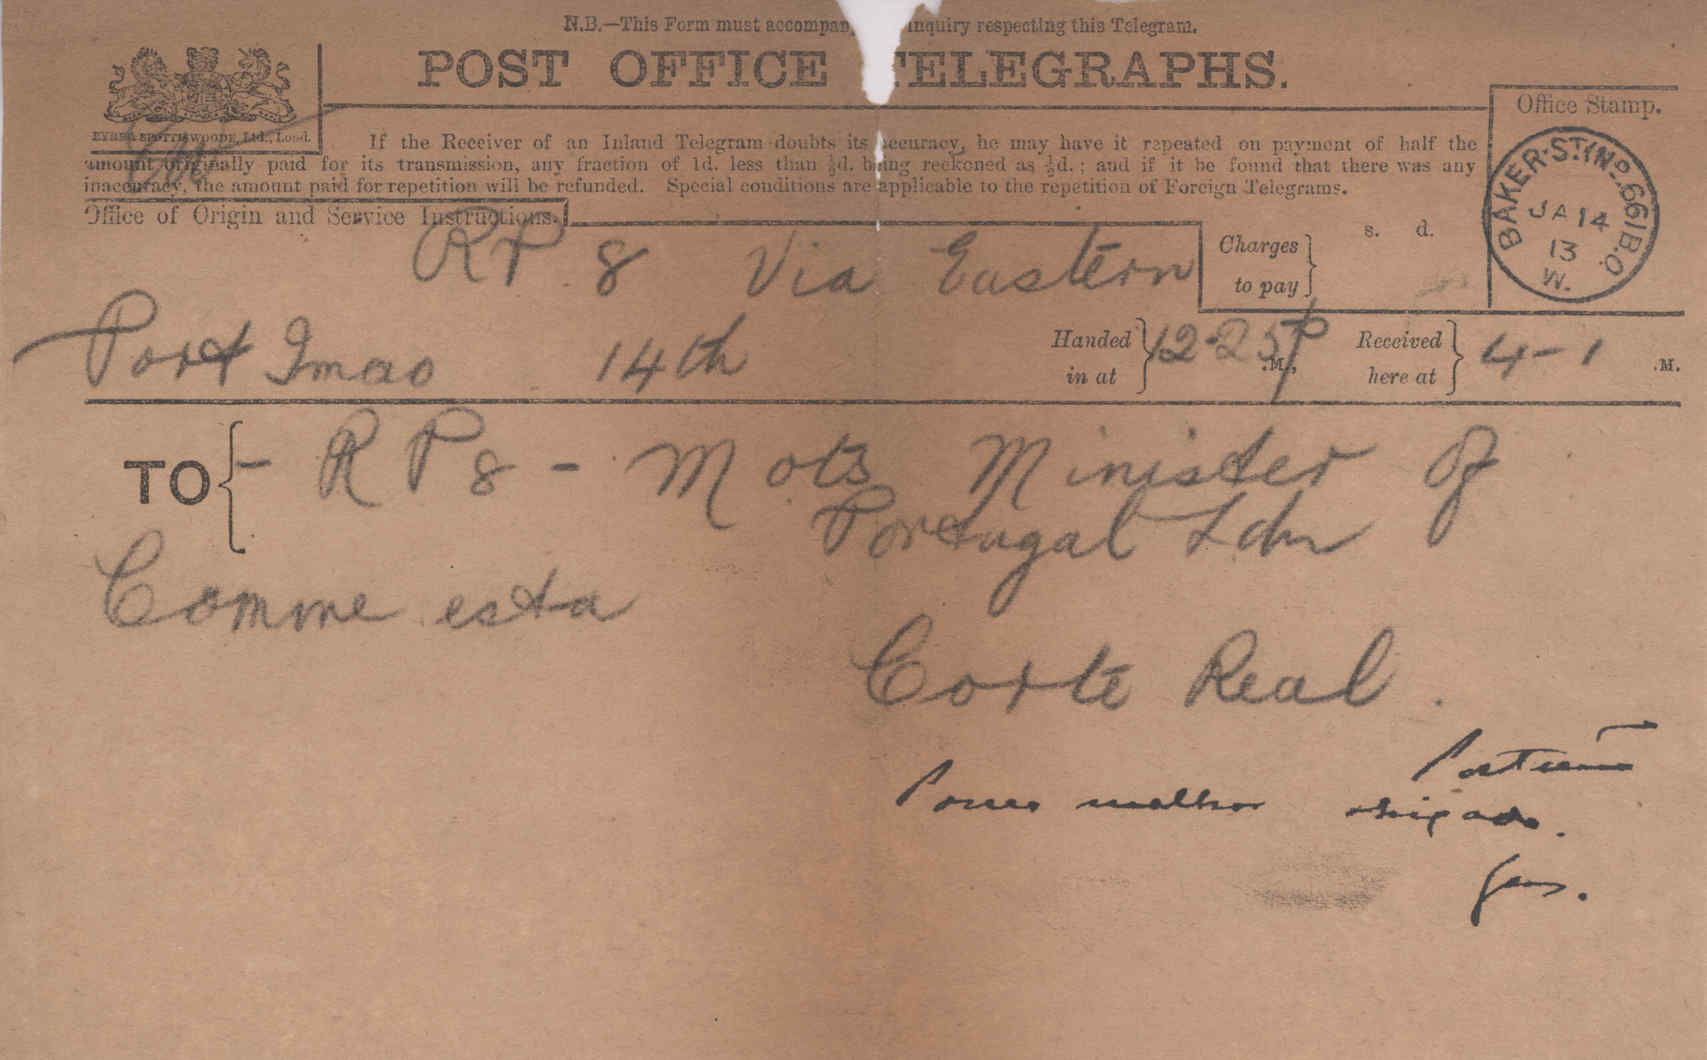 N.B.—This Form must accompan inquiry respecting this Telegram.
POST OFFICE TELEGRAPHS.
EYRE & SPOTTISWOODE, Ltd., Lond.
Office Stamp.
If the Receiver of an Inland Telegram doubts its accuracy, he may have it repeated on payment of half the
amount originally paid for its transmission, any fraction of 1d. less than ½d. being reckoned as ½d.; and if it be found that there was any
inaccuracy, the amount paid for repetition will be refunded. Special conditions are applicable to the repetition of Foreign Telegrams.
BAKER·ST(No.66)B.O.
JA 14
13
W.
Office of Origin and Service Instructions.
RP 8 Via Eastern
Charges to pay } s. d.
Port Imao 14th
Handed in at } 12.25 P .M.,
Received here at } 4-1 .M.
TO { - RP8 - Mots Minister of
Portugal Ldn
Comme esta
Corte Real.
Pouco melhor obrigado.